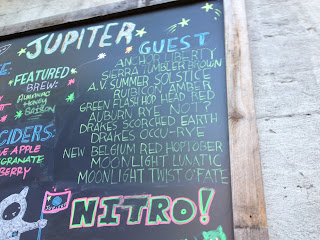 JUPITER
GUEST
ANCHOR LIBERTY
SIERRA TUMBLER BROWN
A.V. SUMMER SOLSTICE
RUBISON AMBER
GREEN FLASH HOP HEAD RED
AUBURN RYE ON IT?
DRAKES SCORCHED EARTH
DRAKES OCCU-RYE
NEW BELGIUM RED HOPTOBER
MOONLIGHT LUNATIC
MOONLIGHT TWIST O'FATE
NITRO!
E:
"FEATURED
BREW:
HONEY
BOURBON
CIDERS:
APPLE
BERRY